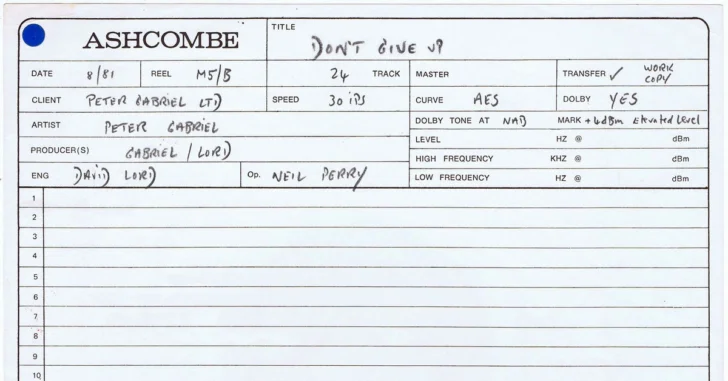 ASHCOMBE
TITLE
DON'T GIVE UP
DATE 8/81 REEL M5/B 24 TRACK MASTER TRANSFER ✓ WORK COPY
CLIENT PETER GABRIEL LTD SPEED 30 iPS CURVE AES DOLBY YES
ARTIST PETER GABRIEL DOLBY TONE AT NAB MARK +4dBm Elevated Level
PRODUCER(S) GABRIEL / LORD LEVEL HZ @ dBm
HIGH FREQUENCY KHZ @ dBm
ENG DAVID LORD Op. NEIL PERRY LOW FREQUENCY HZ @ dBm
1
2
3
4
5
6
7
8
9
10